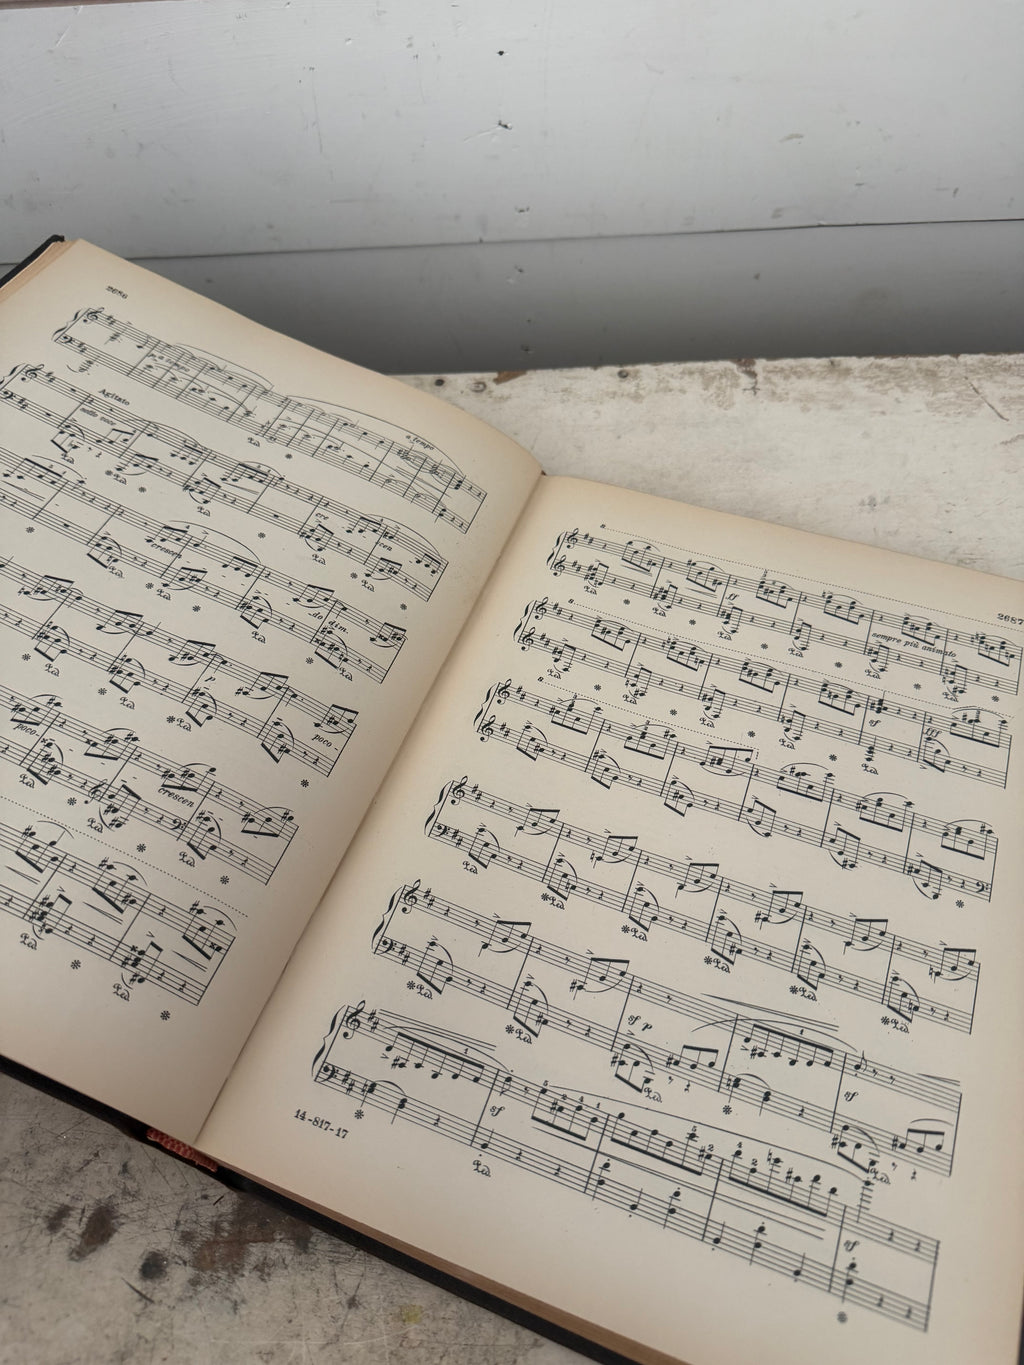 2686
a tempo
Agitato
sotto voce
cre
cen
crescen
do dim.
p
poco-
poco-
crescen
8
2687
ff
sempre più animato
8
sf
fff
8
sf p
sf
sf
sf
14-817-17